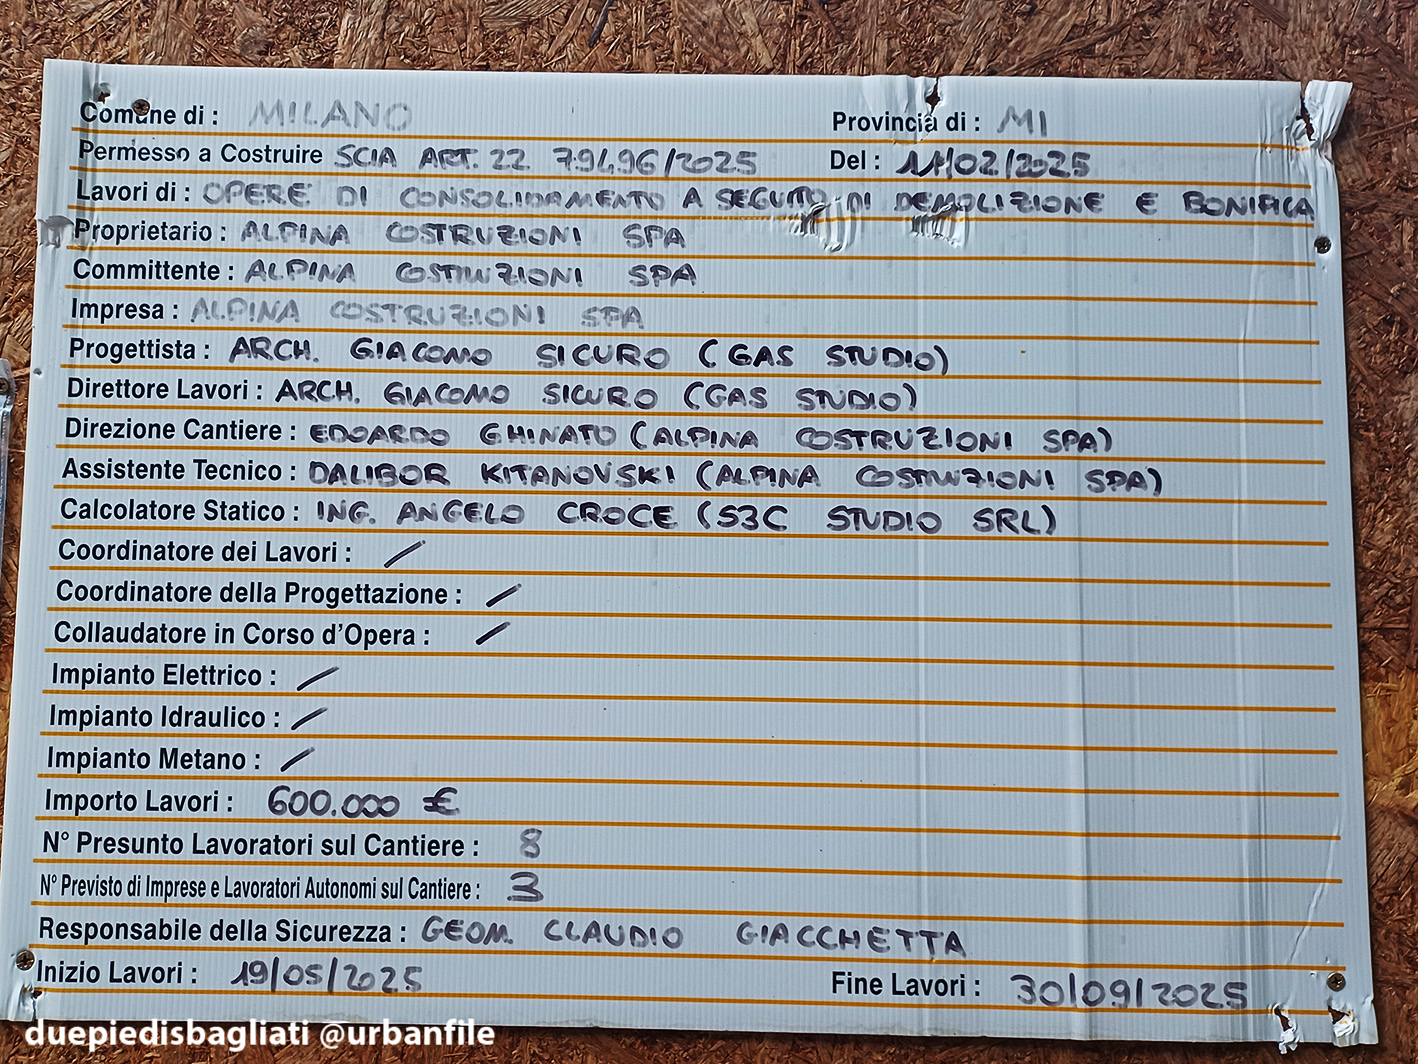 Comune di : MILANO Provincia di : MI
Permesso a Costruire SCIA ART. 22 79496/2025 Del : 11/02/2025
Lavori di : OPERE DI CONSOLIDAMENTO A SEGUITO DI DEMOLIZIONE E BONIFICA
Proprietario : ALPINA COSTRUZIONI SPA
Committente : ALPINA COSTRUZIONI SPA
Impresa : ALPINA COSTRUZIONI SPA
Progettista : ARCH. GIACOMO SICURO (GAS STUDIO)
Direttore Lavori : ARCH. GIACOMO SICURO (GAS STUDIO)
Direzione Cantiere : EDOARDO GHINATO (ALPINA COSTRUZIONI SPA)
Assistente Tecnico : DALIBOR KITANOVSKI (ALPINA COSTRUZIONI SPA)
Calcolatore Statico : ING. ANGELO CROCE (S3C STUDIO SRL)
Coordinatore dei Lavori : /
Coordinatore della Progettazione : /
Collaudatore in Corso d'Opera : /
Impianto Elettrico : /
Impianto Idraulico : /
Impianto Metano : /
Importo Lavori : 600.000 €
N° Presunto Lavoratori sul Cantiere : 8
N° Previsto di Imprese e Lavoratori Autonomi sul Cantiere : 3
Responsabile della Sicurezza : GEOM. CLAUDIO GIACCHETTA
Inizio Lavori : 19/05/2025 Fine Lavori : 30/09/2025
duepiedisbagliati @urbanfile